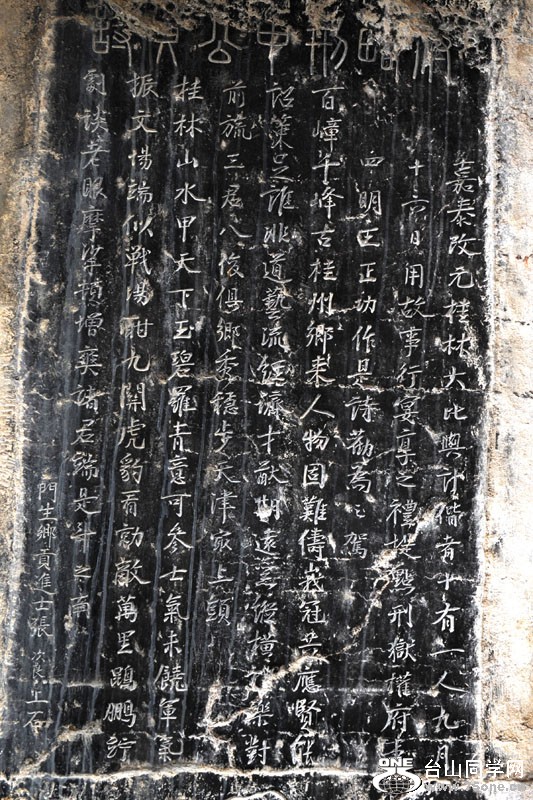 略刑公詩
嘉泰改元桂林大比與計偕者十有一人九月
十六日用故事行宴享之禮提點刑獄權府事
四明王正功作是詩勸為之駕
百嶂千峰古桂州鄉來人物固難儔峨冠共應賢能
詔策足誰非道藝流經濟才猷期遠業縱橫禮樂對
前旒三君八俊俱鄉秀穩步天津最上頭
桂林山水甲天下玉碧羅青意可參士氣未饒軍氣
振文場端似戰場酣九關虎豹看勍敵萬里鵾鵬佇
劇談老眼摩挲頓增爽諸君端是斗之南
門生鄉貢進士張次良上石
ONE 台山同学网